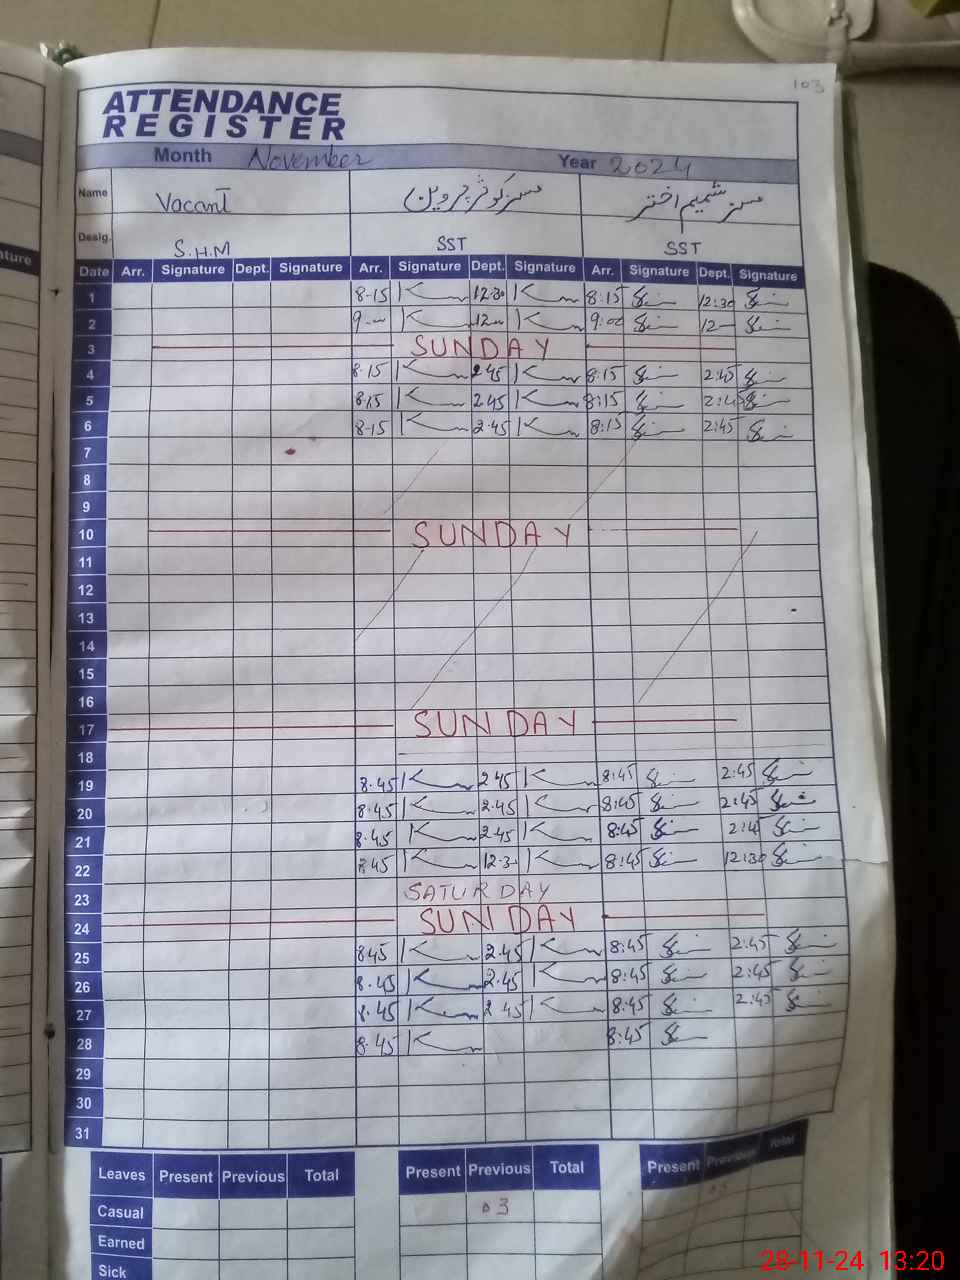 103
ATTENDANCE
REGISTER
Month November Year 2024
Name Vacant مسز کوثر پروین مسز شمیم اختر
Desig. S.H.M SST SST
Date Arr. Signature Dept. Signature Arr. Signature Dept. Signature Arr. Signature Dept. Signature
1 8-15 12:30 8:15 12:30
2 9-- 12-- 9:00 12-
3 SUNDAY
4 8-15 2.45 8:15 2:45
5 8-15 2.45 8:15 2:45
6 8-15 2.45 8:15 2:45
7
8
9
10 SUNDAY
11
12
13
14
15
16
17 SUNDAY
18
19 8.45 2.45 8:45 2:45
20 8.45 2.45 8:45 2:45
21 8.45 2.45 8:45 2:4
22 8.45 12.3- 8:45 12:30
23 SATURDAY
24 SUNDAY
25 8.45 2.45 8:45 2:45
26 8.45 2.45 8:45 2:45
27 8.45 2.45 8:45 2:45
28 8.45 8:45
29
30
31
Leaves Present Previous Total Present Previous Total Present Previous Total
Casual 03
Earned
Sick
28-11-24 13:20